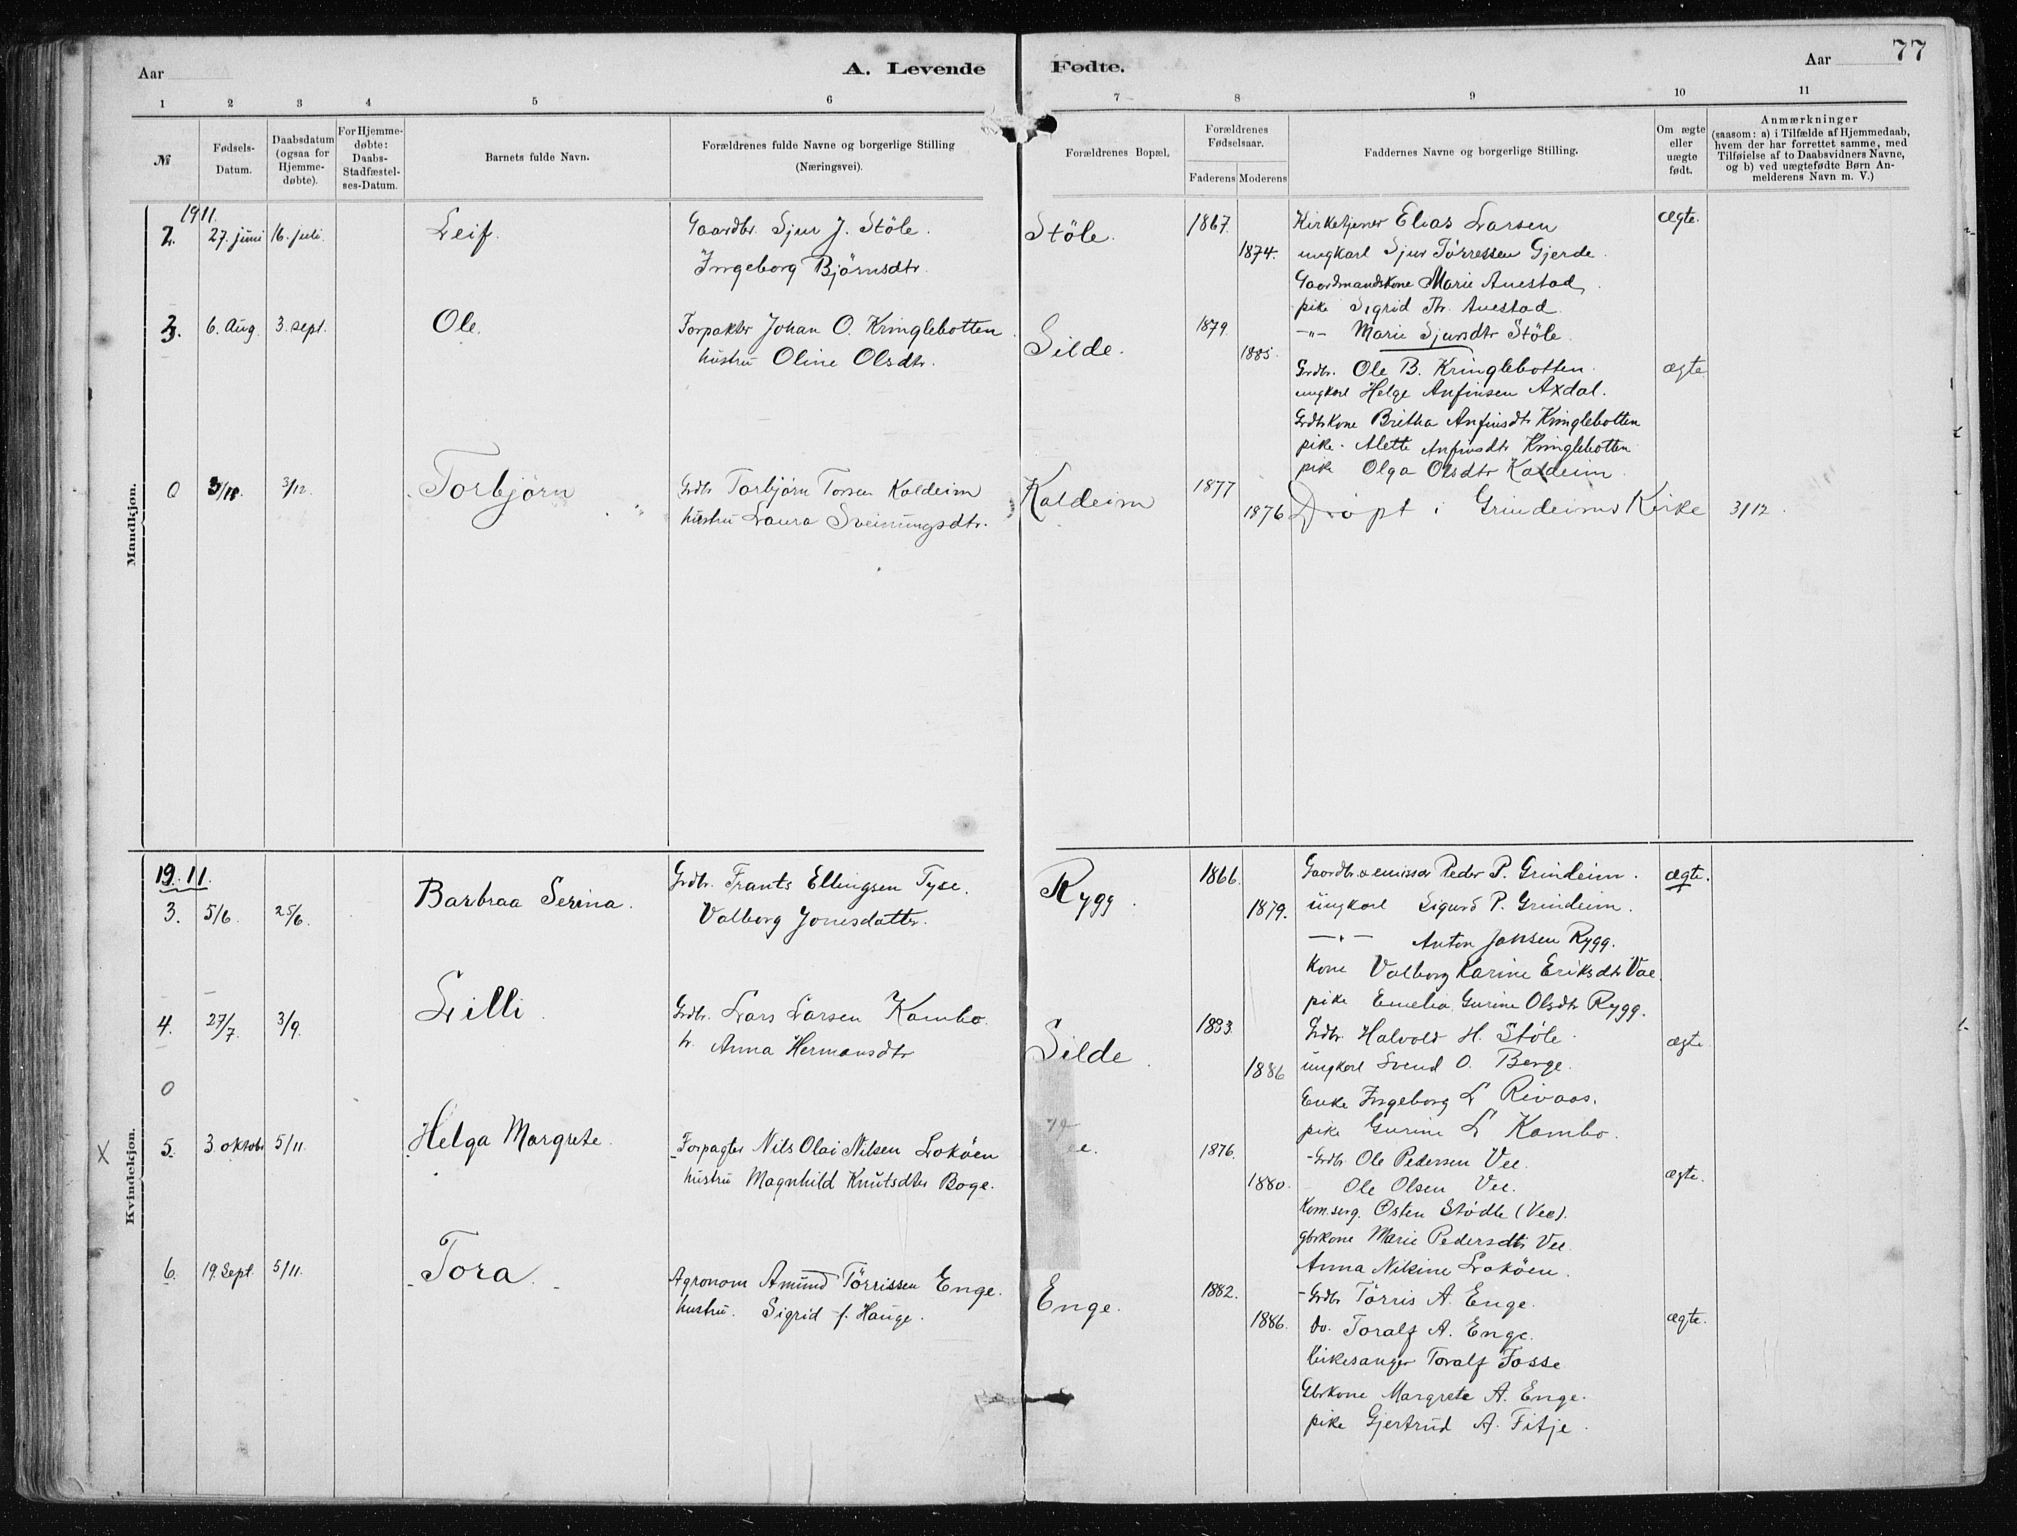 77
Aar
A. Levende
Fødte.
Aar
1 2 3 4 5 6 7 8 9 10 11
№
Fødsels-Datum.
Daabsdatum (ogsaa for Hjemme-døbte).
For Hjemme-døbte: Daabs-Stadfæstel-ses-Datum.
Barnets fulde Navn.
Forældrenes fulde Navne og borgerlige Stilling
(Næringsvei).
Forældrenes Bopæl.
Forældrenes Fødselsaar.
Faderens Moderens
Faddernes Navne og borgerlige Stilling.
Om ægte eller uægte født.
Anmærkninger
(saasom: a) i Tilfælde af Hjemmedaab, hvem der har forrettet samme, med Tilføielse af to Daabsvidners Navne, og b) ved uægtefødte Børn An-melderens Navn m. V.)
Mandkjøn.
1911.
2. 27. juni 16. juli. Leif. Gaardbr. Sjur J. Støle. Støle. 1867. Kirketjener Elias Larsen ægte.
Ingeborg Bjørnsdtr. 1874. ungkarl Sjur Tørressen Gjerde.
Gaardmandskone Marie Auestad,
pike Sigrid Th. Auestad.
—"— Marie Sjursdtr Støle.
3. 6. Aug. 3. sept. Ole. Forpakter Johan O. Kringlebotten Silde. 1879.
hustru Oline Olsdtr. 1885. Grdbr. Ole B. Kringlebotten. ægte
ungkarl Helge Anfinsen Axdal.
Grdbkone Britha Anfinsdtr Kringlebotten
pike. Alette Anfinsdtr Kringlebotten
pike Olga Olsdtr Kaldeim.
0 3/12. Torbjørn Grdbr Torbjørn Torsen Kaldeim Kaldeim 1877
hustru Laura Sveinungsdtr. 1876 Døpt i Grindeims Kirke 3/12.
Kvindekjøn.
19.11.
3. 5/6. 25/6. Barbraa Serina. Grdbr. Frants Ellingsen Tyse. Rygg. 1866. Gaardbr. & emissær Peder P. Grindeim. ægte.
Valborg Jonesdatter. 1879. ungkarl Sigurd P. Grindeim.
—"— Anton Jansen Rygg.
Kone Valborg Karine Eriksdtr Vae.
pike Emelia Gurine Olsdtr Rygg.
4. 27/7. 3/9. Lilli. Grdbr. Lars Larsen Kambo. Silde. 1883. Grdbr. Halvold H. Støle. ægte.
h. Anna Hermansdtr 1886 ungkarl Svend O. Berge.
Enke Ingeborg L Rivaas.
pike Gurine L Kambo.
0
X
5. 3 oktobr 5/11. Helga Margrete. Forpagter Nils Olai Nilsen Lokøen 1876. Grdbr. Ole Pedersen Vee.
hustru Magnhild Knutsdtr Boge. 1880. Ole Olsen Vee. ægte.
Kom.serg. Østen Stødle (Vee).
gbrkone Marie Pedersdtr Vee.
Anna Nilsine Lokøen.
6. 19. Sept. 5/11. Tora. Agronom Amund Tørrissen Enge. Enge. 1882. Grdbr Tørris A. Enge.
hustru. Sigrid f. Hauge. 1886. Do. Toralf A. Enge. ægte.
Kirkesanger Toralf Fosse
Gbrkone Margrete A. Enge.
pike Gjertrud A. Fitje.